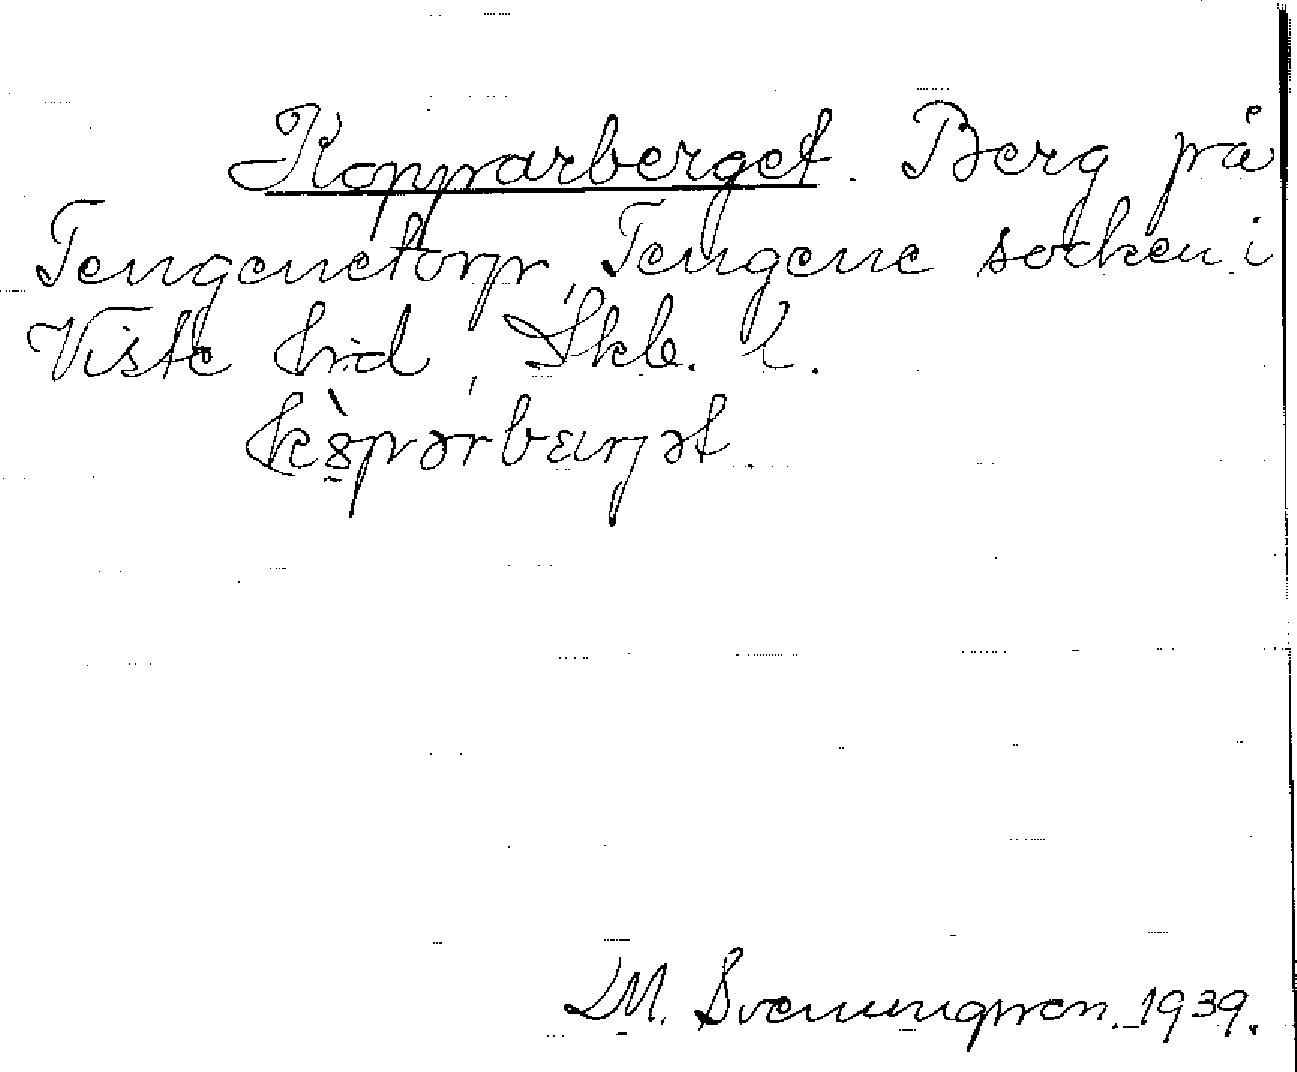 Kopparberget. Berg på
Tengenetorp, Tengene socken i
Viste hrd, Skb. l.
DM. Svenungsson. 1939.